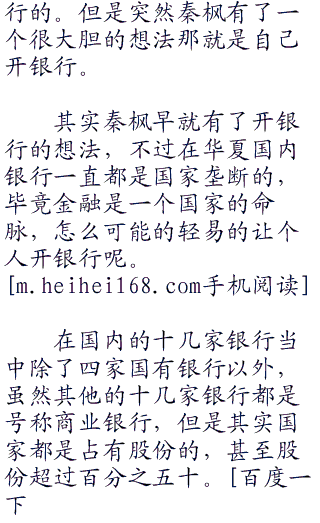 行的。但是突然秦枫有了一
个很大胆的想法那就是自己
开银行。
其实秦枫早就有了开银
行的想法，不过在华夏国内
银行一直都是国家垄断的，
毕竟金融是一个国家的命
脉，怎么可能的轻易的让个
人开银行呢。
[m.heihei168.com手机阅读]
在国内的十几家银行当
中除了四家国有银行以外，
虽然其他的十几家银行都是
号称商业银行，但是其实国
家都是占有股份的，甚至股
份超过百分之五十。[百度一
下